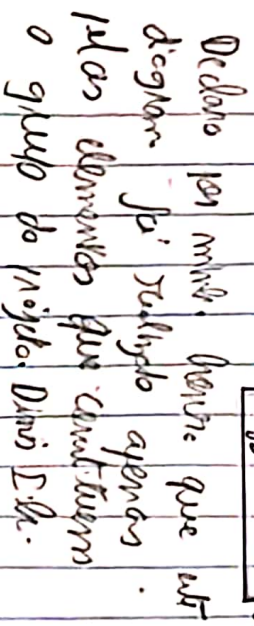 Declaro por minha honra que este
diagram foi realizado apenas
pelos elementos que constituem
o grupo do projeto. Dinis